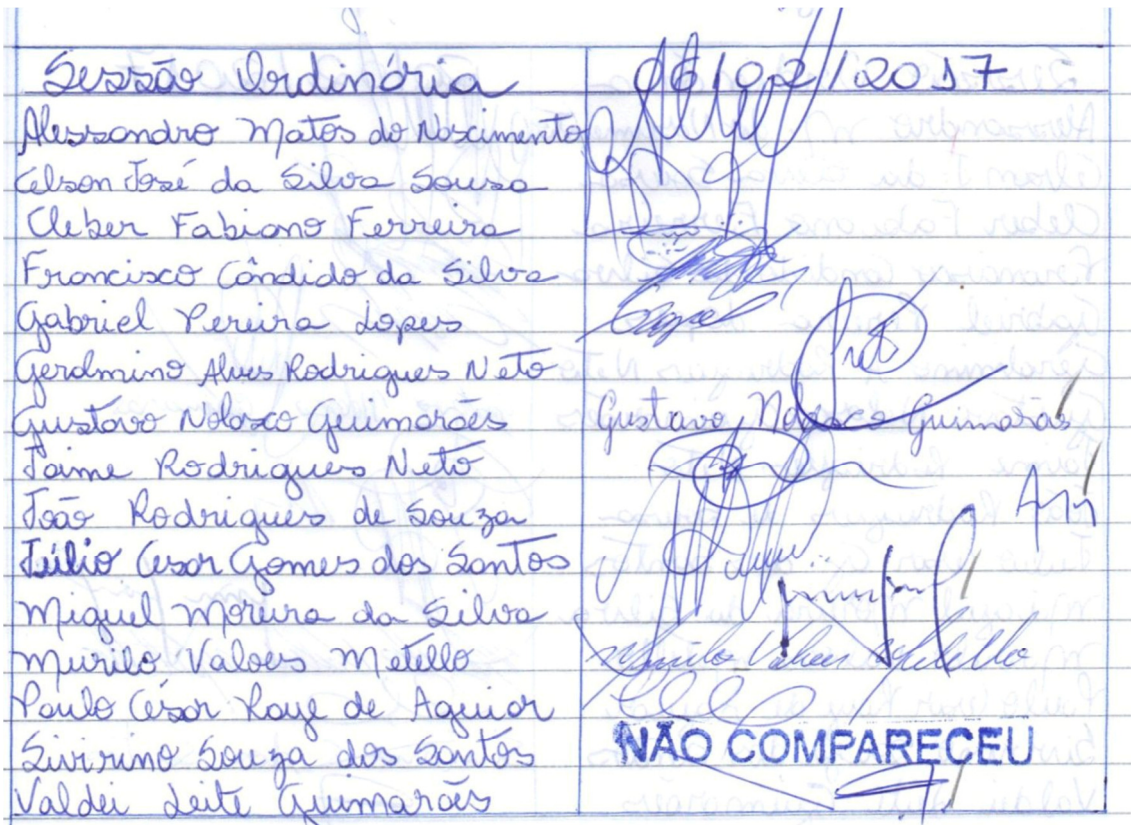 Sessão Ordinária 06/02/2017
Alessandro Matos do Nascimento
Celson José da Silva Sousa
Cleber Fabiano Ferreira
Francisco Cândido da Silva
Gabriel Pereira Lopes
Gerolmino Alves Rodrigues Neto
Gustavo Nolasco Guimarães Gustavo Nolasco Guimarães
Jaime Rodrigues Neto
João Rodrigues de Souza
Júlio Cesar Gomes dos Santos
Miguel Moreira da Silva
Murilo Valoes Metello Murilo Valoes Metello
Paulo César Raye de Aguiar
Sivirino Souza dos Santos NÃO COMPARECEU
Valdei Leite Guimarães